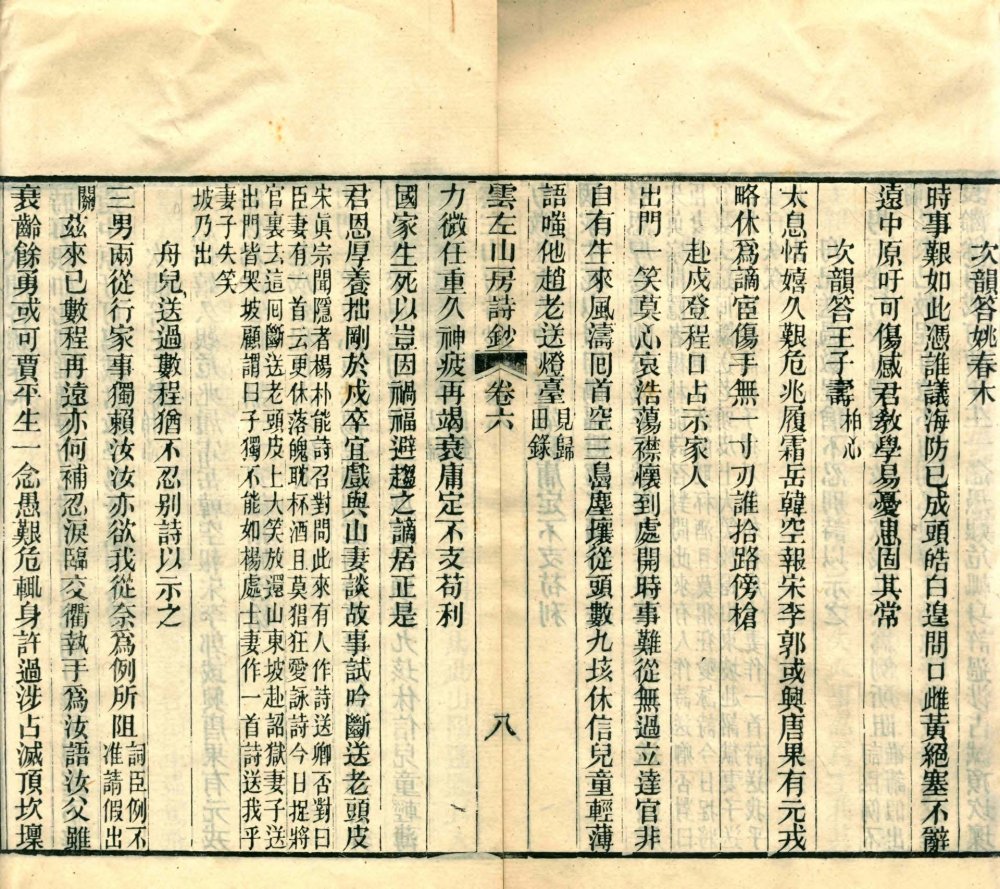 次韻答姚春木
時事艱如此憑誰議海防已成頭皓白遑問口雌黃絕塞不辭
遠中原吁可傷感君教學易憂患固其常
次韻答王子壽柏心
太息恬嬉久艱危兆履霜岳韓空報宋李郭或興唐果有元戎
略休爲謫宦傷手無一寸刃誰拾路傍槍
赴戍登程口占示家人
出門一笑莫心哀浩蕩襟懷到處開時事難從無過立達官非
自有生來風濤囘首空三島塵壤從頭數九垓休信兒童輕薄
語嗤他趙老送燈臺見歸田錄
雲左山房詩鈔 卷六 八
力微任重久神疲再竭衰庸定不支苟利
國家生死以豈因禍福避趨之謫居正是
君恩厚養拙剛於戍卒宜戲與山妻談故事試吟斷送老頭皮
宋眞宗聞隱者楊朴能詩召對問此來有人作詩送卿否對曰
臣妻有一首云更休落魄耽杯酒且莫猖狂愛詠詩今日捉將
官裏去這囘斷送老頭皮上大笑放還山東坡赴詔獄妻子送
出門皆哭坡顧謂曰子獨不能如楊處士妻作一首詩送我乎
妻子失笑
坡乃出
舟兒送過數程猶不忍别詩以示之
三男兩從行家事獨賴汝汝亦欲我從奈爲例所阻詞臣例不准請假出
關茲來已數程再遠亦何補忍淚臨交衢執手爲汝語汝父雖
衰齡餘勇或可賈平生一念愚艱危輒身許過涉占滅頂坎壈